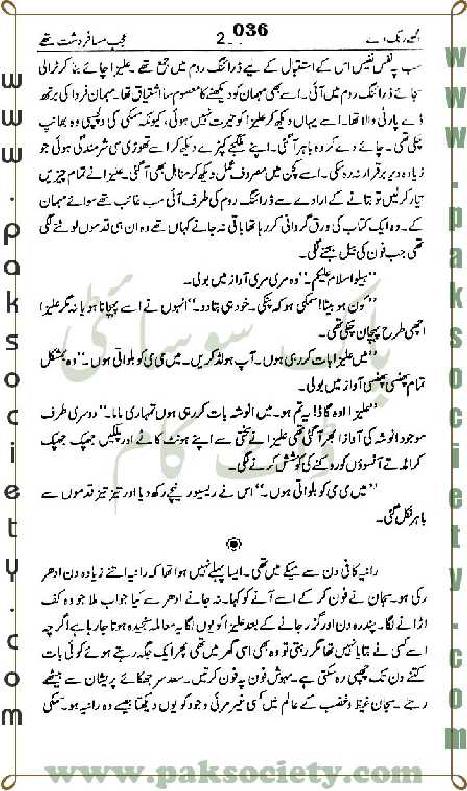 036
2
عجب مسافر دشت تھے
سب بہ نفس نفیس اس کے استقبال کے لیے ڈرائنگ روم میں جمع تھے۔ علیزا چائے بنا کر ٹرالی
سجائے ڈرائنگ روم میں آئی۔ اسے بھی مہمان کو دیکھنے کا معصوم سا اشتیاق تھا۔ مہمان فردا کی برتھ
ڈے پارٹی والا تھا۔ اسے یہاں دیکھ کر علیزا کو حیرت نہیں ہوئی، کیونکہ سمکی کی دلچسپی وہ بھانپ
چکی تھی۔ چائے دے کر وہ باہر آگئی۔ اپنے ملگجے کپڑے دیکھ کر اسے تھوڑی سی شرمندگی ہوئی جو
زیادہ دیر برقرار نہ رہ سکی۔ اسے کچن میں مصروف عمل دیکھ کر مناہل بھی آگئی۔ علیزا نے تمام چیزیں
تیار کر لیں تو بتانے کے ارادے سے ڈرائنگ روم کی طرف آئی سب غائب تھے سوائے مہمان
کے۔ وہ ایک کتاب کی ورق گردانی کر رہا تھا باقی نہ جانے کہاں تھے وہ ان ہی قدموں لوٹنے لگی
تھی جب فون کی بیل بجنے لگی۔
”ہیلو اسلام علیکم۔“ وہ مری مری آواز میں بولی۔
”کون ہو بیٹا! سمکی ہو کہ پنکی۔ خود ہی بتا دو۔“ انہوں نے اسے پہچانا ہو یا نہ مگر علیزا
اچھی طرح پہچان چکی تھی۔
”میں علیزا بات کر رہی ہوں۔ آپ ہولڈ کریں۔ میں ممی کو بلواتی ہوں۔“ وہ بمشکل
تمام پھنسی پھنسی آواز میں بولی۔
”علیزا! اوہ گاڈ! یہ تم ہو۔ میں انوشہ بات کر رہی ہوں تمہاری ماما۔“ دوسری طرف
موجود انوشہ کی آواز ابھر آگئی تھی علیزا نے سختی سے اپنے ہونٹ کاٹے اور پلکیں جھپک جھپک
کر امڈتے آنسوؤں کو روکنے کی کوشش کرنے لگی۔
”میں ممی کو بلواتی ہوں۔“ اس نے ریسیور نیچے رکھ دیا اور تیز تیز قدموں سے
باہر نکل گئی۔
رانیہ کافی دن سے میکے میں تھی۔ ایسا پہلے نہیں ہوا تھا کہ رانیہ اتنے زیادہ دن ادھر
رکی ہو۔ سبحان نے فون کر کے اسے آنے کو کہا۔ نہ جانے ادھر سے کیا جواب ملا جو وہ کف
اڑانے لگا۔ پندرہ دن اور گزر جانے کے بعد علیزا کو یوں لگا یہ معاملہ سنجیدہ ہوتا جا رہا ہے اگرچہ
اسے کسی نے بتایا نہیں تھا مگر رہتی تو وہ بھی اسی گھر میں تھی پھر ایک جگہ رہتے ہوئے کوئی بات
کتنے دن تک چھپی رہ سکتی ہے۔ مہوش فون پہ فون کرتیں۔ سعد سر جھکائے پریشان سے بیٹھے
رہتے۔ سبحان غیظ و غضب کے عالم میں کسی غیر مرئی وجود کو یوں دیکھتا جیسے وہ رانیہ ہو۔ سمکی
www.paksociety.com
www.paksociety.com
www.paksociety.com
پاک سوسائٹی
ڈاٹ کام